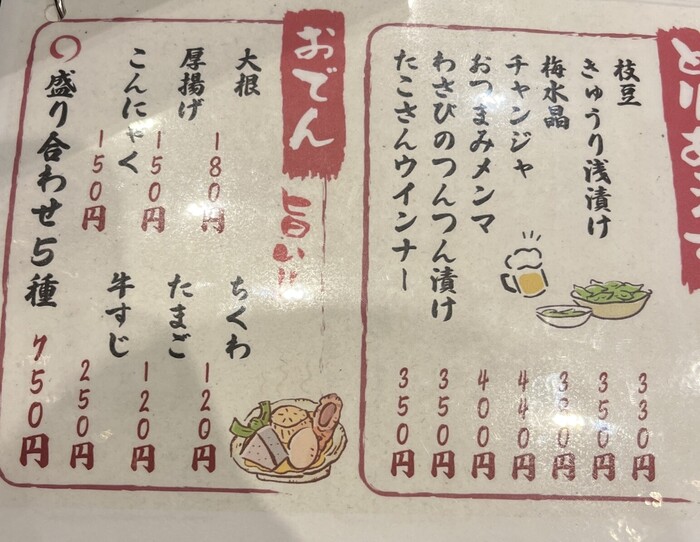 枝豆 330円
きゅうり浅漬け 350円
梅水晶 380円
チャンジャ 440円
おつまみメンマ 400円
わさびのつんつん漬け 350円
たこさんウインナー 350円
おでん
旨い!!
大根 180円
厚揚げ 150円
こんにゃく 150円
ちくわ 120円
たまご 120円
牛すじ 250円
盛り合わせ5種 750円